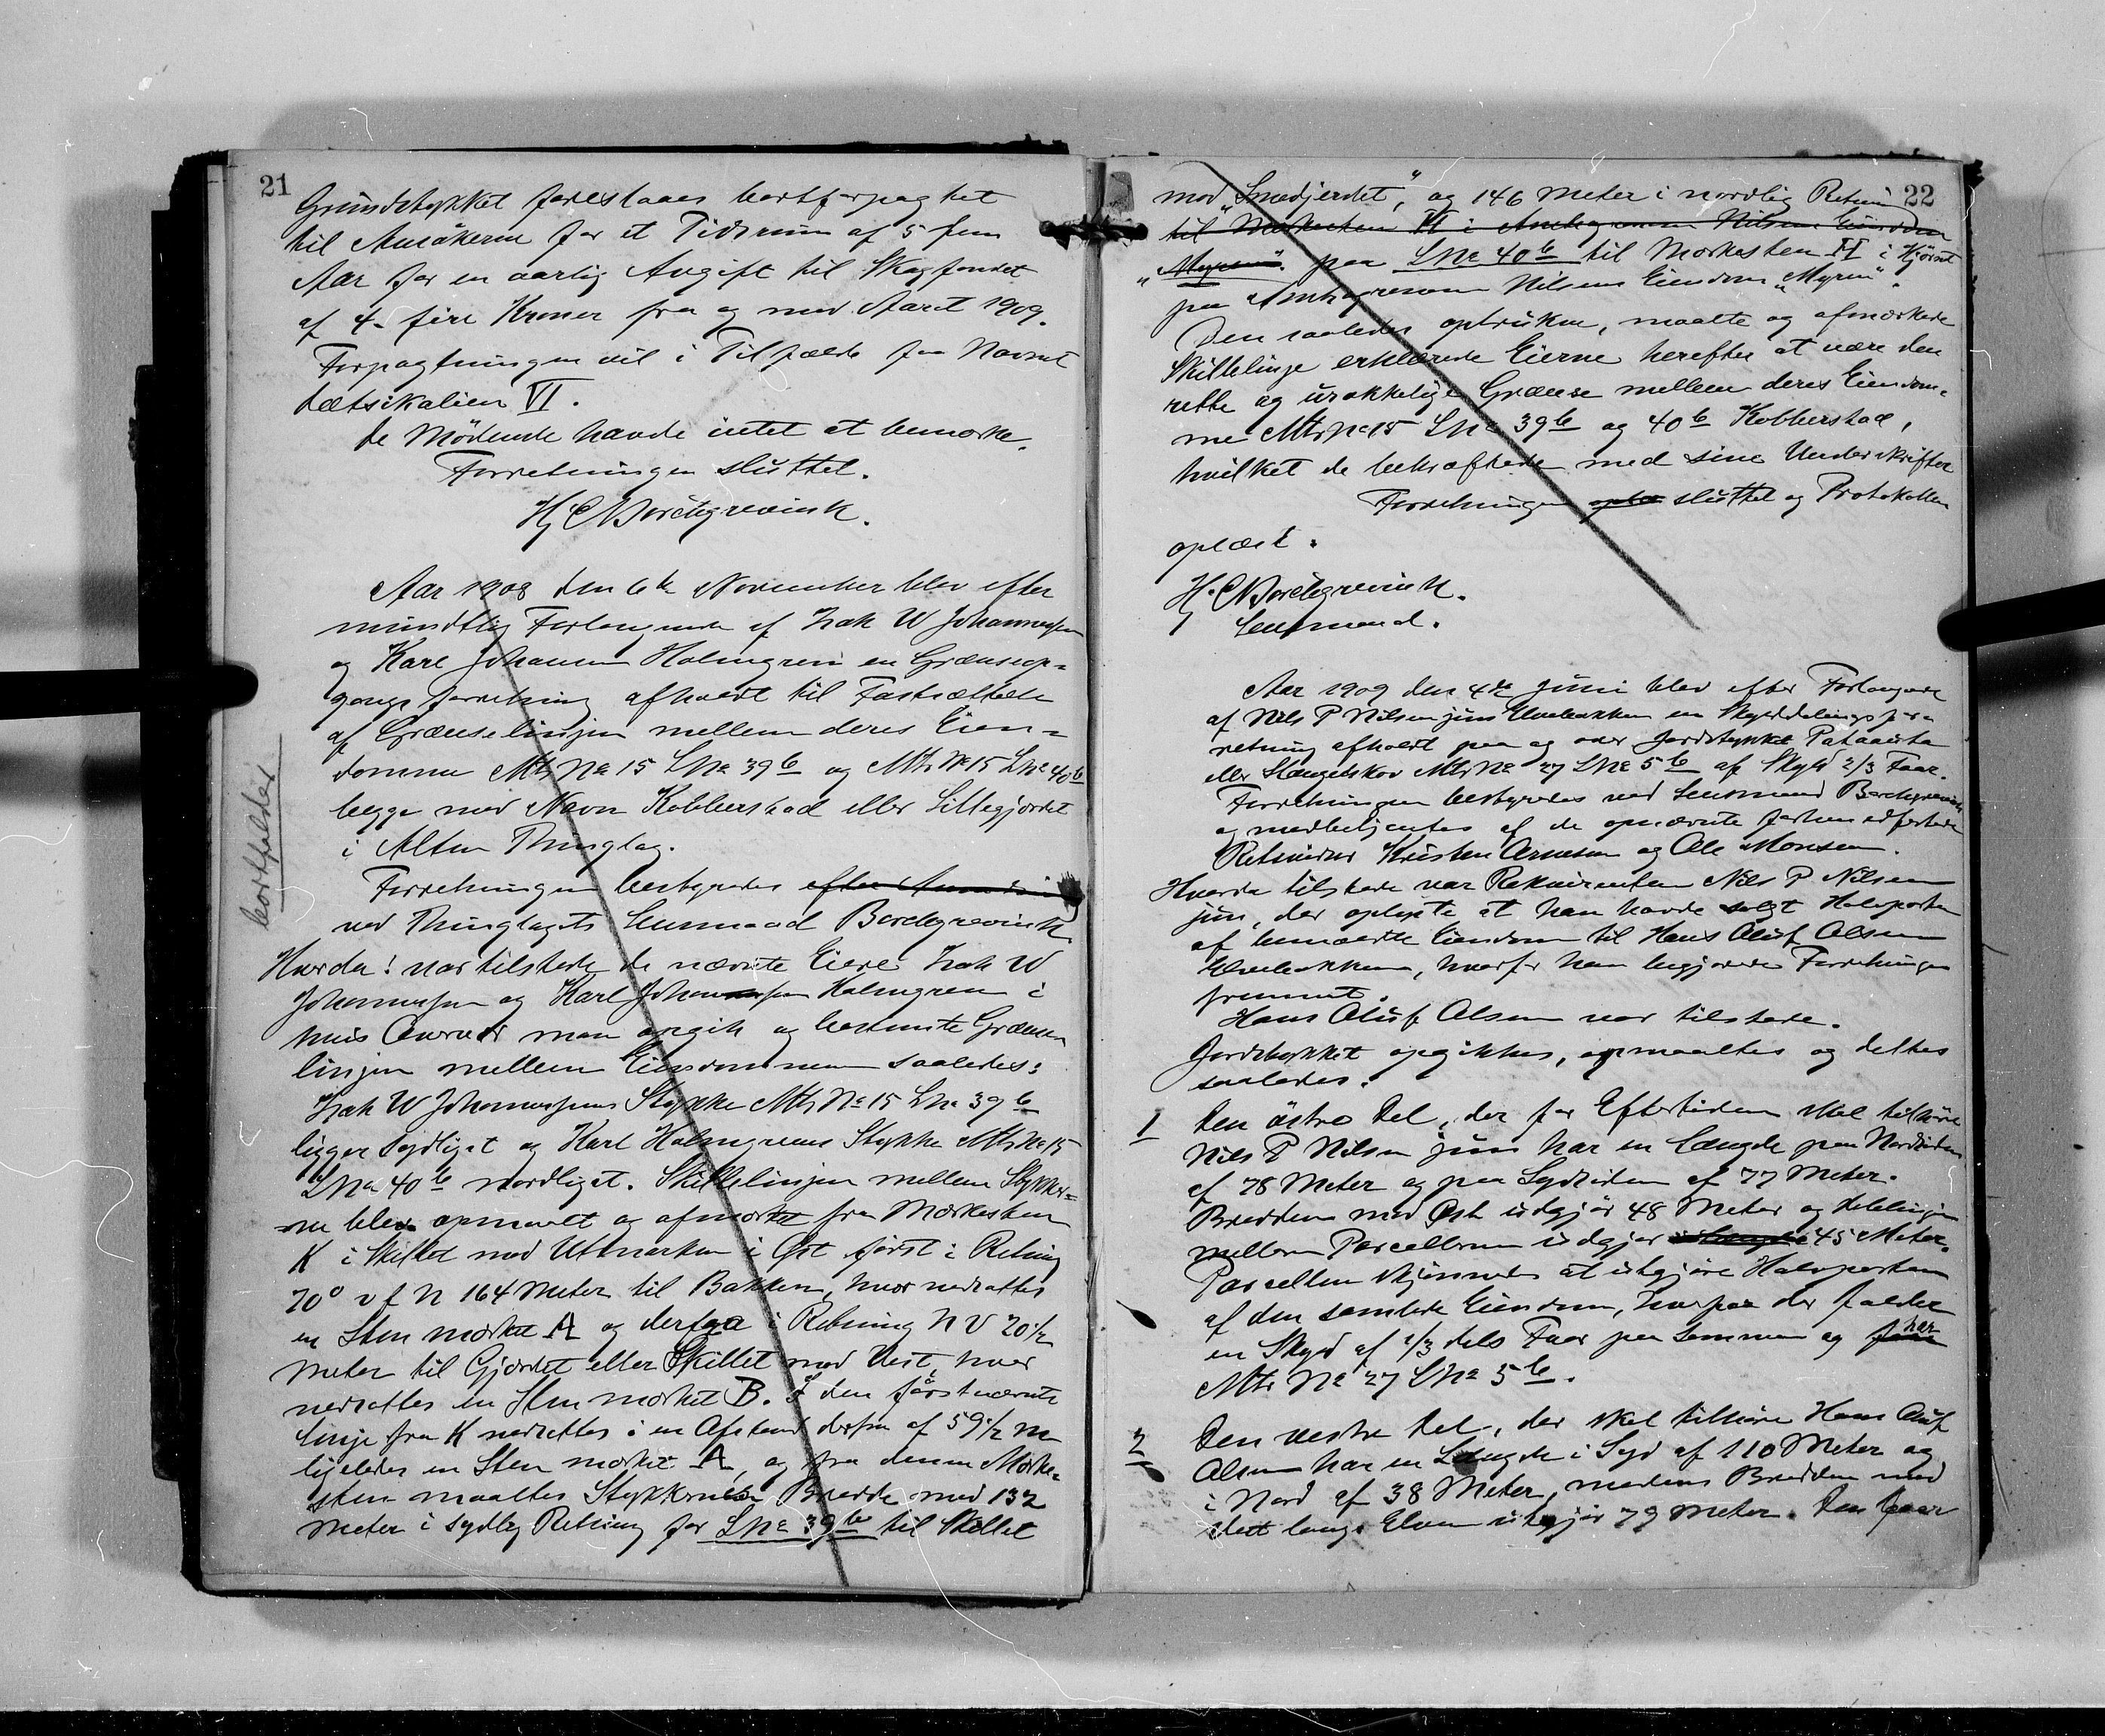 21
Grundstykket foreslaaes bortforpagtet
til Ansökeren for et Tidsrum af 5 fem
Aar for en aarlig Avgift til Skogfondet
af 4. fire Kroner fra og med Aaret 1909.
Forpagtningen vil i Tilfælde faa Navnet
VI.
De Mødende havde intet at bemærke.
Forretningen sluttet.
Hj C Borchgrevink.
Aar 1908 den 6te November blev efter
mundtlig Forlangende af Isak W Johannesen
og Karl Johansen Holmgren en Grænseop=
gangsforretning afholdt til Fastsættelse
af Grænselinjen mellem deres Eien=
domme Mtr No 15 LNo 39b og Mtr No 15 LNo 40b
begge med Navn Kobberstad eller Lillegjærdet
i Alten Thinglag.
Forretningen bestyredes efter
ved Thinglagets Lensmand Borchgrevink
bortfalder
Hvorda! var tilstede de nævnte Eiere Isak W
Johannesen og Karl Johansen Holmgren i
hvis Overvær man opgik og bestemte Grænse
linjen mellem Eiendommene saaledes:
Isak W Johannesens Stykke Mtr No 15 LNo 39b
ligger sydligst og Karl Holmgrens Stykke Mtr No 15
LNo 40b nordligst. Skillelinjen mellem Stykker=
ne blev opmaalt og afmærket fra Mærkesten
K i Skillet mod Utmarken i Øst først i Retning
70° v f N 164 Meter til Bakken, hvor nedsattes
en Sten mærket A og derfra i Retning N V 20 1/2
Meter til Gjærdet eller Skillet mod Vest, hvor
nedsattes en Sten mærket B. I den førstnævnte
Linje fra K nedsattes i en Afstand derfra af 59 1/2 m
ligeledes en Sten mærket A, og fra denne Mærke=
sten maaltes Stykkernes Bredde med 132
Meter i sydlig Retning for LNo 39b til Skillet
22
mod „Smedjerdet", og 146 Meter i nordlig Retning
til Mærkesten H i Nilsens Eiendom
„Myren". paa LNo 40b til Mærkesten H i Hjørnet
paa Nilsens Eiendom „Myren".
Den saaledes optrukne, maalte og afmærkede
Skillelinje erklærede Eierne herefter at være den
rette og urokkelige Grænse mellem deres Eiendom=
me Mtr No 15 LNo 39b og 40b Kobberstad,
hvilket de bekræftede med sine Underskrifter
Forretningen sluttet og Protokollen
oplæst.
Hj. C Borchgrevink.
Lensmand.
Aar 1909 den 4de Juni blev efter Forlangende
af Nils P Nilsen jun Elvebakken en Skylddelingsfor=
retning afholdt paa og over Jordstykket
eller Slengetskov Mtr No 27 LNo 5b af Skyld 2/3 Faar.
Forretningen bestyredes ved Lensmand Borchgrevink
og medbetjentes af de opnævnte forhen edfæstede
Retsvidner Kristen Arnesen og Ole Monsen.
Hvorda tilstede var Rekvirenten Nils P Nilsen
jun, der oplyste at han havde solgt Halvparten
af bemældte Eiendom til Hans Oluf Olsen
Elvebakken, hvorfor han begjærede Forretningen
fremmet.
Hans Oluf Olsen var tilstede.
Jordstykket opgikkes, opmaaltes og deltes
saaledes.
1 Den östre Del, der for Eftertiden skal tilhöre
Nils P Nilsen jun har en Længde paa Nordsiden
af 78 Meter og paa Sydsiden af 77 Meter.
Bredden mod Øst udgjör 48 Meter og Delelinjen
mellem Parcellerne udgjør i Længde 45 Meter.
Parcellen skjönnedes at udgjøre Halvparten
af den samlede Eiendom, hvorpaa der falder
en Skyld af 1/3 dels Faar paa Sommen og faar har
Mtr No 27 LNo 5b.
2 Den vestre Del, der skal tilhöre Hans Oluf
Olsen har en Længde i Syd af 110 Meter og
i Nord af 38 Meter, medens Bredden mod
Vest langs Elven udgjör 79 Meter. Den faar